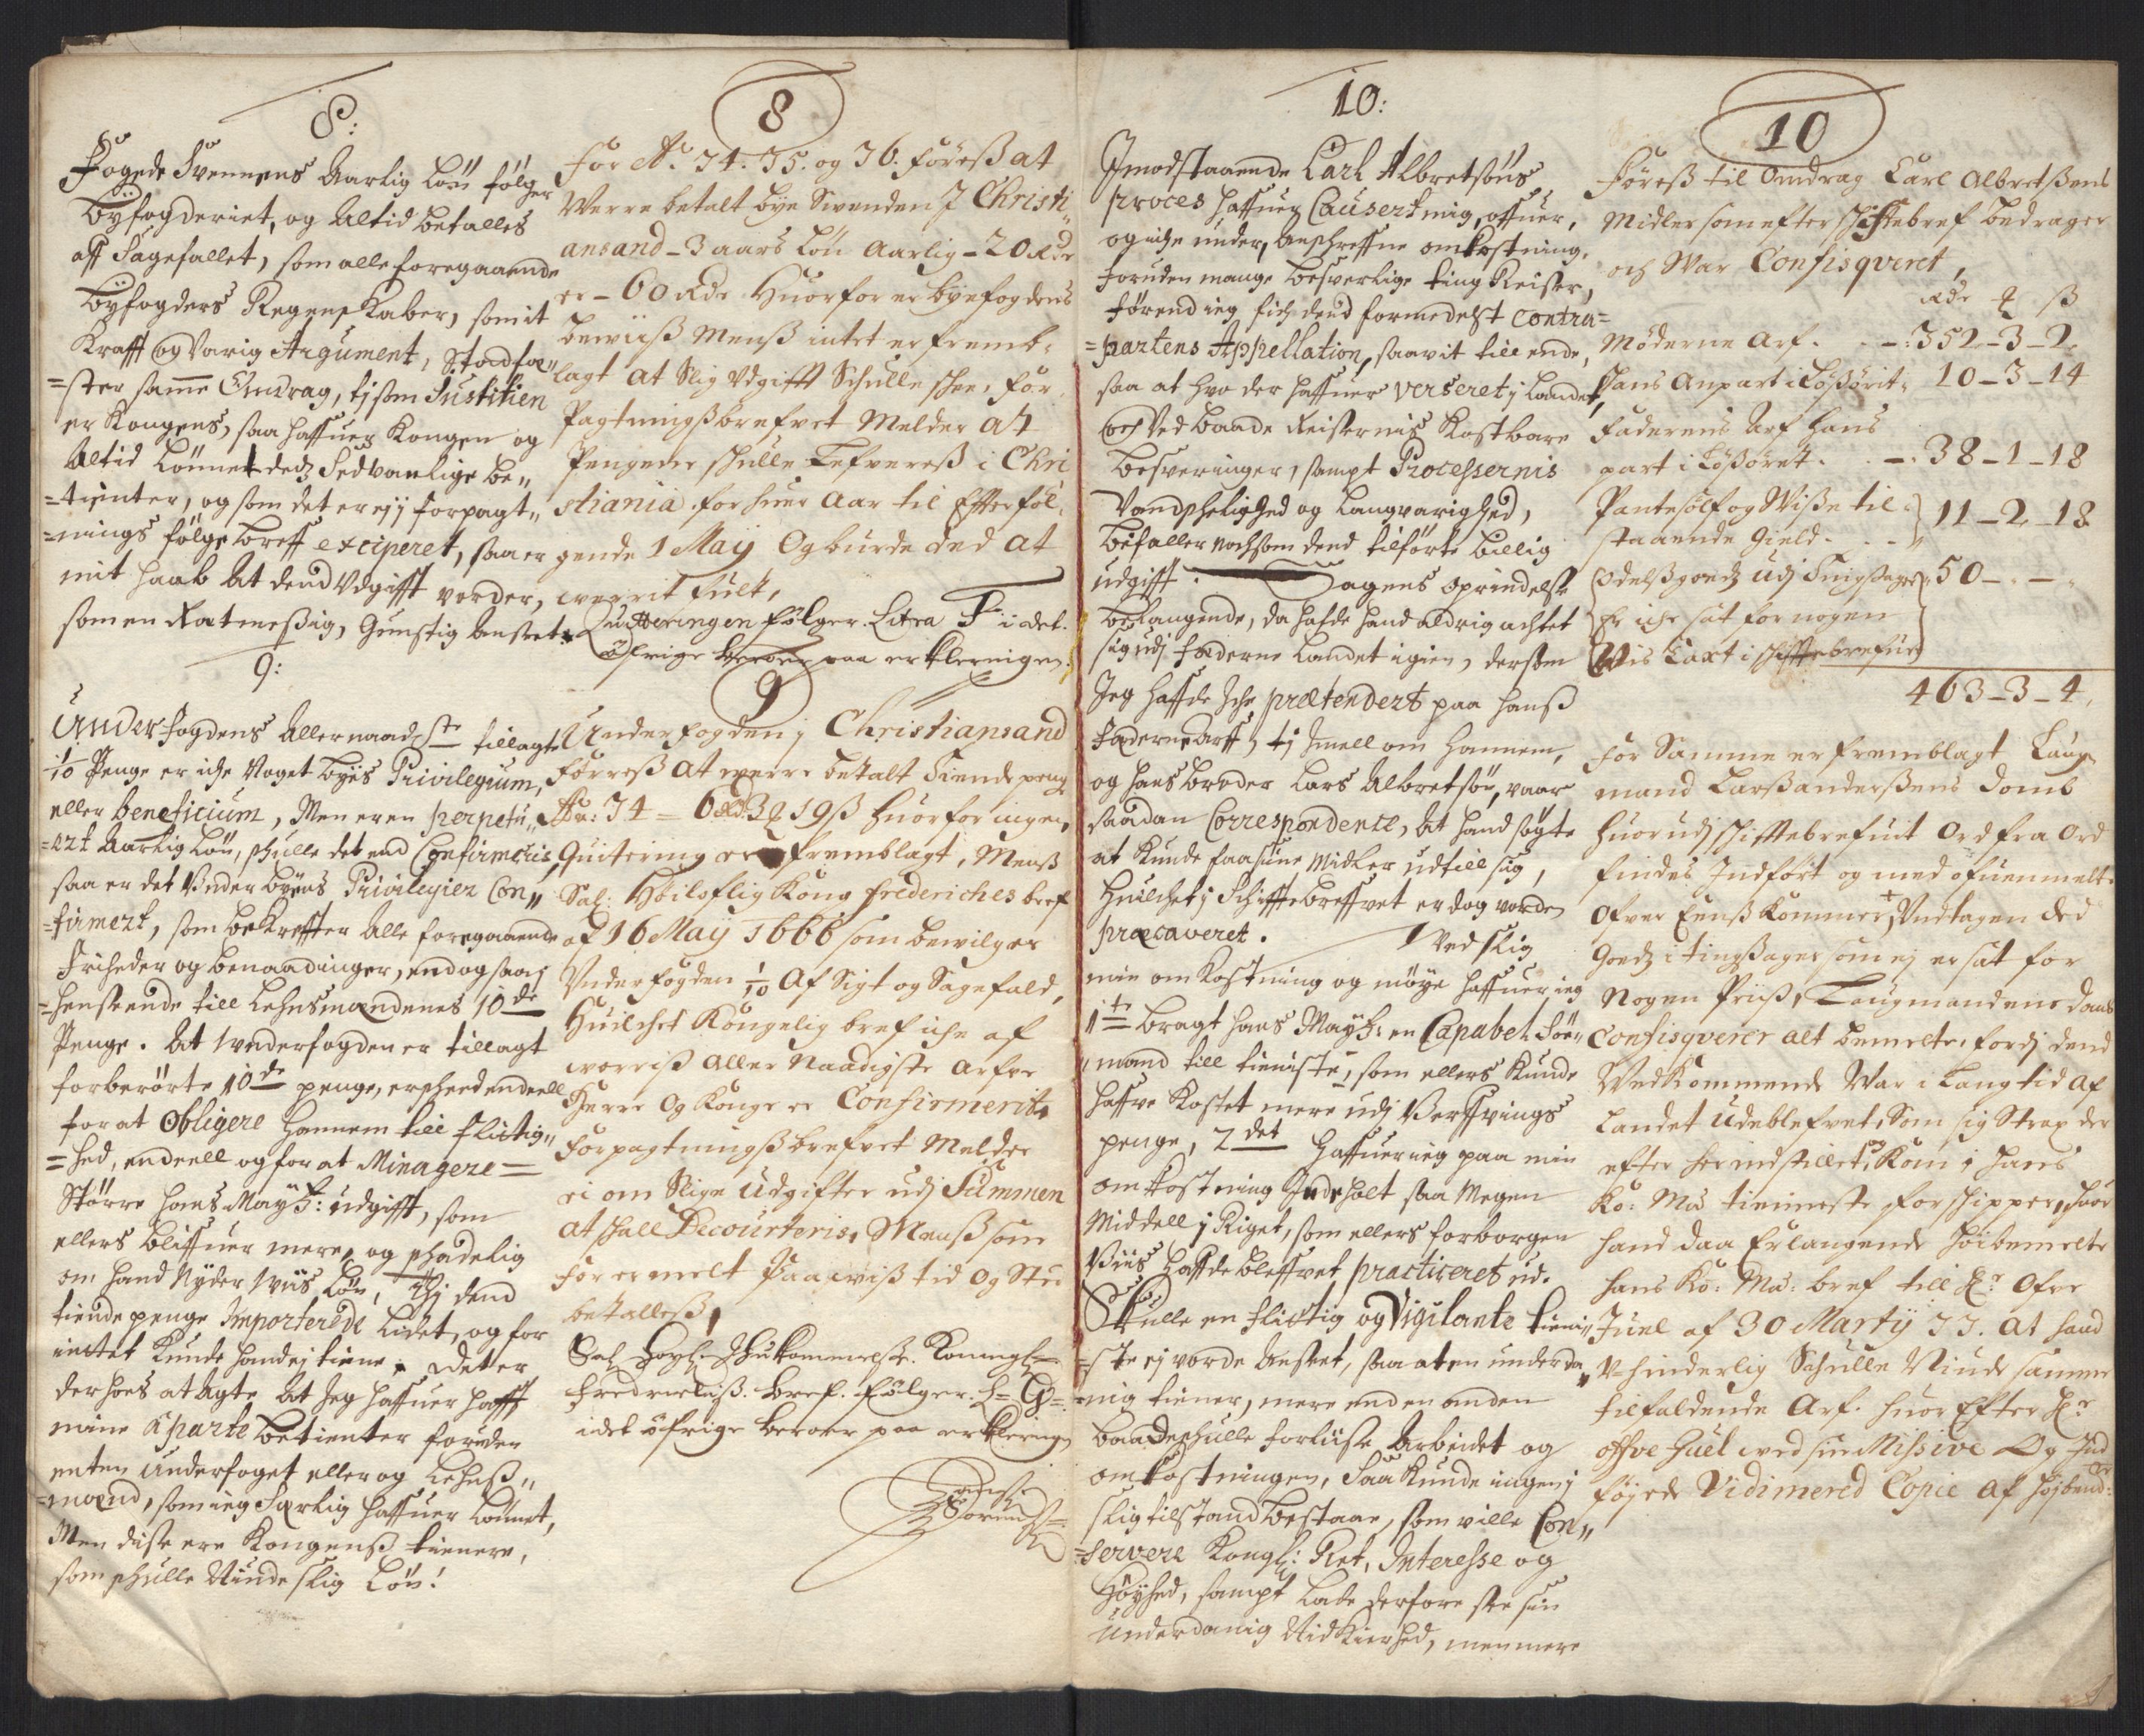 8:
Fogede Svennens Aarlig Løn følger
Byfogderiet, og Altid betalles
aff Sagefallet, som alle foregaaende
Byfogders Regenskaber, som it
Krafft og Varig Argument, Stadfæ„
=ster samme Andrag, tj som Justitien
er Kongens, saa haffuer Kongen og
Altid Lønnet dedz Sedvanlige be„
=tienter, og som det er ej j forpagt„
=nings følge breff exciperet, saa er
mit haab At dend Udgifft vorder,
som en Ratmessig, Gunstig Anseet.
9:
Underfogdens Allernaadste tillagte
1/10 Penge er iche Noget byes Privilegium,
eller beneficium, Men er en perpetu„
=ert Aarlig Løn, schulle det end Confirmeris,
saa er det Under byens Privilegier Con„
=firmert, som bekreffter Alle foregaaende
Friheder og benaadinger, endog saa j
=henseende till Lehnsmændenes 10de
Penge. At Underfogden er tillagt
forberørte 10de penge, er scheed endeell
for at Obligere Hannem till flittig„
=hed, endeell og for at Minagere =
Større hans Mayts: udgifft, som
ellers bliffuer mere, og schadelig
om hand Nyder Viis Løn, Thj dend
tiende penge Importerede lidet, og for
intet Kunde hand ej tiene, Det er
derhos at Agte At Jeg haffuer hafft
mine aparte betienter foruden
enten Underfoget eller og Lehns„
=mænd, som ieg Særlig haffuer lønnet,
Men disse ere Kongens tienere,
som schulle Niude slig Løn!
8
For Ao: 74. 75. og 76. føress at
Werre betalt bye Svenden J Christi„
ansand – 3 aars Løn Aarlig – 20 Rdr
er – 60 Rdr Huorfor er byefogdens
beviiss Menss intet er fremb„
lagt At Slig Udgifft Schulle schee, for
Pagtningssbrefvet Melder At
Pengene schulle Lefveress i Chri
stiania for huer Aar til Efterføl„
gende 1 Maij Og burde ded At
werrit fult,
Quitteringen følger Litra F i det
øfrige beroer paa erklæringen.
9
Underfogden j Christiansand
Førress at werre betalt Tiende peng
Ao: 74 = 6 Rd 3 19 ß huorfor ingen
Quitering er fremblagt, Menss
Sal: Høiloflig Kong frederiches bref
af 16 Maij 1666 som bewilger
Underfogden 1/10 Af Sigt og Sagefald,
Huilchet Kongelig bref iche af
worriss Aller Naadigste Arfve
Herre Og Konge er Confirmerit,
Forpagtningssbrefvet Melder
ei om Slige Udgifter udj Summen
At schall Decourteris, Menss som
for er melt Paa wiss tid Og Sted
betalless,
Sal. Høyl. Ihukommelse. Koningl.
Fredrichss. bref. følger L= G=
i det øfrige beroer paa erklæringen
10:
Jmodstaaende Carl Albretsøns
proces haffuer Causert mig, offuer,
og iche under, Anschreffne omkostning,
foruden mange besverlige ting Reiser,
førend ieg fich dend formedelst contra=
=partens Appellation, saavit till ende,
saa at hvo der haffuer verseret j Landet,
och Ved baade Reisernis Kostbare
besveringer, sampt Processernis
Vandschelighed og Langvarighed,
befaller nochsom dend tilførte billig
udgifft. Sagens Oprindelse
belangende, da hafde hand aldrig achtet
sig udj fæderne Landet igien, dersom
Jeg haffde Iche prætendert paa hanss
Fæderne Arff, tj Jmell om hannem,
og hans broder Lars Albretsøn, vaar
saadan Correspondence, At hand søgte
at Kunde faa sine Midler ud till sig,
Huilchet j Schifftebreffvet er dog vorden
præcaveret. Ved slig
min omkostning og møye haffuer ieg
1te bragt hans Mayts: en Capabel Søe„
mand till tieniste, som ellers Kunde
haffve Kostet mere udj Verffvings
penge, 2det haffuer ieg paa min
omkostning Indeholt saa Megen
Middell j Riget, som ellers forborgen
Viis haffde bleffvet practiceret ud.
Skulle en flittig og Vigilante tieni„
=ste ej vorde Anseet, saa at en underda„
=nig tiener, mere end en anden
baade schulle forliise Arbeidet og
omkostningen, Saa Kunde ingen j
slig tilstand bestaae, som ville Con„
=servere Kongl: Ret, Interesse og
Høyhed, sampt lade derfore see sin
Underdanig Nidkierhed, men mere
10
Føress til Omdrag Carl Albretssens
Midler som efter schiftebref bedrager
och War Confisqveret,
Rdr ß
Møderne Arf . . –: 352 – 3 – 2
Hans Anpart i Løssørit: 10 – 3 – 14
Faderens Arf hans
part i Løssøret . . –: 38 – 1 – 18
Pantesølf og Wisse til
staaende Gield . . –: 11 – 2 – 18
Odelssgodz udj Tingsager 50 – . – .
Er iche sat for nogen
Wis Taxt i schiftebrefuit
463 – 3 – 4,
For Samme er fremblagt Laug
mand Larss anderssens domb
Huor udj schiftebrefuit Ord fra Ord
findes Indført og med ofuenmelte
Ofver Eenss Kommer, Undtagen ded
Godz i tingssager som ej er sat for
Nogen Priiss, Laugmandens domb
Confisqverer alt bemelte, fordj dend
Wedkommende War i Lang tid Af
Landet Udeblefvet, Som sig Strax der
efter her indstillet, Kom j hans
Ko: Ma tienneste for schipper, huor
hand daa Erlangende høibemelte
hans Ko: Ma: bref till Hr Ofve
Juel af 30 Martij 77. At hand
U-hinderlig Schulle Niude samme
tilfaldende Arf. huor Efter Hr
Offve Juel wed sin Missive Og Ind
føjede Vidimered Copie Af højbemte: